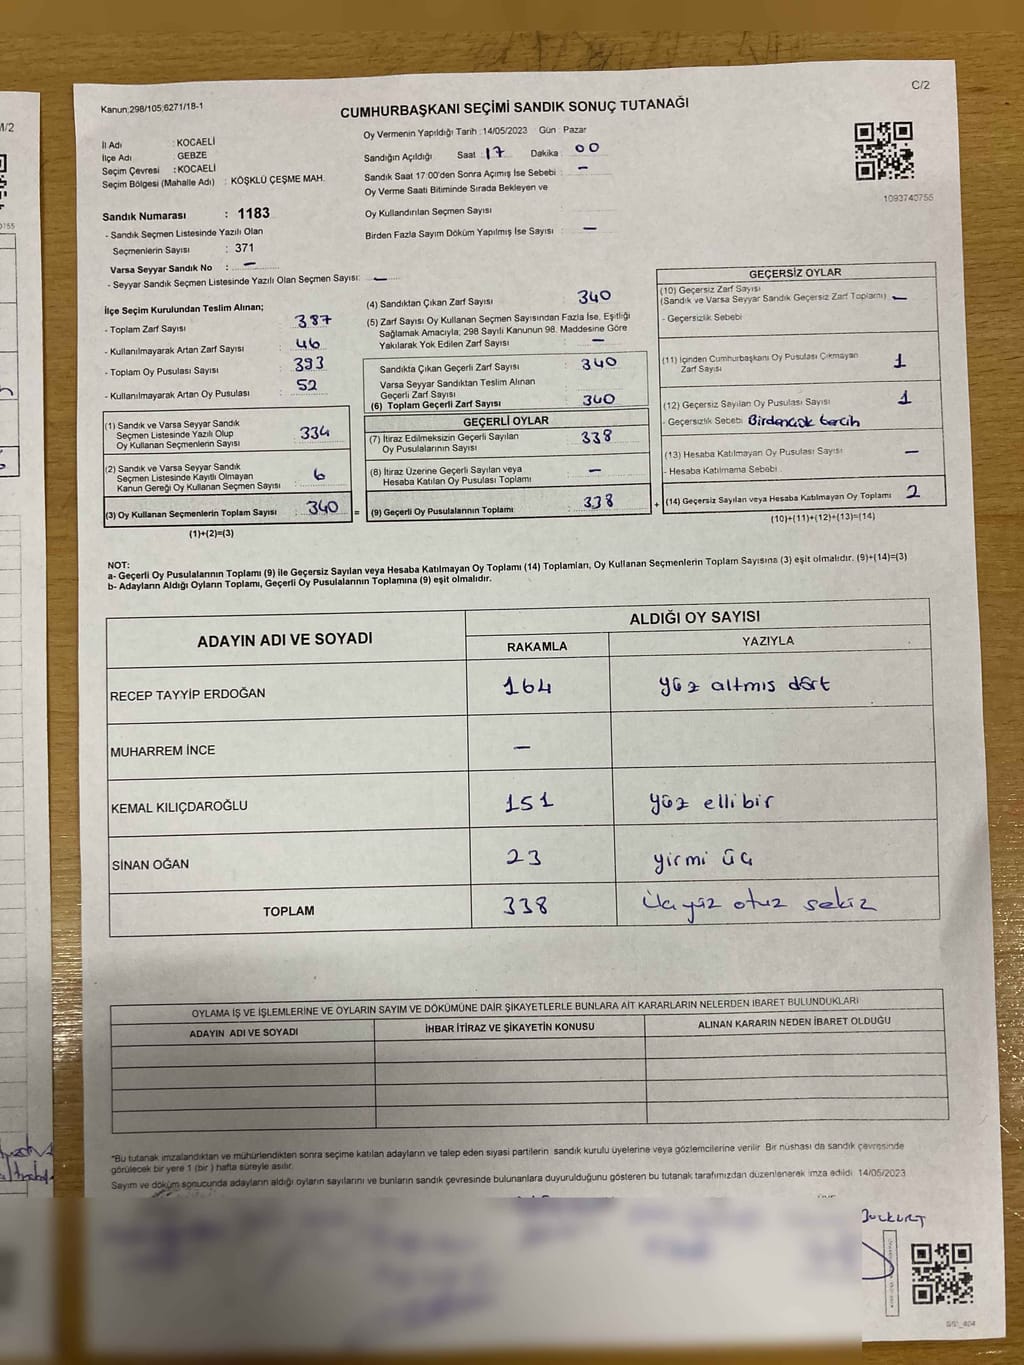 C/2
Kanun;298/105;6271/18-1
CUMHURBAŞKANI SEÇİMİ SANDIK SONUÇ TUTANAĞI
İl Adı : KOCAELİ
İlçe Adı : GEBZE
Seçim Çevresi : KOCAELİ
Seçim Bölgesi (Mahalle Adı) : KÖŞKLÜ ÇEŞME MAH.
Sandık Numarası : 1183
- Sandık Seçmen Listesinde Yazılı Olan
Seçmenlerin Sayısı : 371
Varsa Seyyar Sandık No : —
- Seyyar Sandık Seçmen Listesinde Yazılı Olan Seçmen Sayısı: —
Oy Vermenin Yapıldığı Tarih :14/05/2023 Gün : Pazar
Sandığın Açıldığı Saat 17 Dakika 00
Sandık Saat 17:00'den Sonra Açımış İse Sebebi : —
Oy Verme Saati Bitiminde Sırada Bekleyen ve
Oy Kullandırılan Seçmen Sayısı :
Birden Fazla Sayım Döküm Yapılmış İse Sayısı : —
1093740755
İlçe Seçim Kurulundan Teslim Alınan;
- Toplam Zarf Sayısı : 387
- Kullanılmayarak Artan Zarf Sayısı : 46
- Toplam Oy Pusulası Sayısı : 393
- Kullanılmayarak Artan Oy Pusulası : 52
(1) Sandık ve Varsa Seyyar Sandık
Seçmen Listesinde Yazılı Olup
Oy Kullanan Seçmenlerin Sayısı : 334
(2) Sandık ve Varsa Seyyar Sandık
Seçmen Listesinde Kayıtlı Olmayan
Kanun Gereği Oy Kullanan Seçmen Sayısı : 6
(3) Oy Kullanan Seçmenlerin Toplam Sayısı : 340 =
(1)+(2)=(3)
(4) Sandıktan Çıkan Zarf Sayısı : 340
(5) Zarf Sayısı Oy Kullanan Seçmen Sayısından Fazla İse, Eşitliği
Sağlamak Amacıyla; 298 Sayılı Kanunun 98. Maddesine Göre
Yakılarak Yok Edilen Zarf Sayısı : —
Sandıkta Çıkan Geçerli Zarf Sayısı : 340
Varsa Seyyar Sandıktan Teslim Alınan
Geçerli Zarf Sayısı :
(6) Toplam Geçerli Zarf Sayısı : 340
GEÇERLİ OYLAR
(7) İtiraz Edilmeksizin Geçerli Sayılan
Oy Pusulasının Sayısı : 338
(8) İtiraz Üzerine Geçerli Sayılan veya
Hesaba Katılan Oy Pusulası Toplamı : —
(9) Geçerli Oy Pusulalarının Toplamı : 338 +
GEÇERSİZ OYLAR
(10) Geçersiz Zarf Sayısı
(Sandık ve Varsa Seyyar Sandık Geçersiz Zarf Toplamı) —
- Geçersizlik Sebebi
(11) İçinden Cumhurbaşkanı Oy Pusulası Çıkmayan
Zarf Sayısı : 1
(12) Geçersiz Sayılan Oy Pusulası Sayısı : 1
- Geçersizlik Sebebi Birdençok tercih
(13) Hesaba Katılmayan Oy Pusulası Sayısı : —
- Hesaba Katılmama Sebebi
(14) Geçersiz Sayılan veya Hesaba Katılmayan Oy Toplamı : 2
(10)+(11)+(12)+(13)=(14)
NOT:
a- Geçerli Oy Pusulalarının Toplamı (9) ile Geçersiz Sayılan veya Hesaba Katılmayan Oy Toplamı (14) Toplamları, Oy Kullanan Seçmenlerin Toplam Sayısına (3) eşit olmalıdır. (9)+(14)=(3)
b- Adayların Aldığı Oyların Toplamı, Geçerli Oy Pusulalarının Toplamına (9) eşit olmalıdır.
ADAYIN ADI VE SOYADI ALDIĞI OY SAYISI
RAKAMLA YAZIYLA
RECEP TAYYİP ERDOĞAN 164 yüz altmıs dört
MUHARREM İNCE —
KEMAL KILIÇDAROĞLU 151 yüz elli bir
SİNAN OĞAN 23 yirmi üç
TOPLAM 338 üçyüz otuz sekiz
OYLAMA İŞ VE İŞLEMLERİNE VE OYLARIN SAYIM VE DÖKÜMÜNE DAİR ŞİKAYETLERLE BUNLARA AİT KARARLARIN NELERDEN İBARET BULUNDUKLARI
ADAYIN ADI VE SOYADI İHBAR İTİRAZ VE ŞİKAYETİN KONUSU ALINAN KARARIN NEDEN İBARET OLDUĞU
*Bu tutanak imzalandıktan ve mühürlendikten sonra seçime katılan adayların ve talep eden siyasi partilerin sandık kurulu üyelerine veya gözlemcilerine verilir. Bir nüshası da sandık çevresinde
görülecek bir yere 1 (bir) hafta süreyle asılır.
Sayım ve döküm sonucunda adayların aldığı oyların sayılarını ve bunların sandık çevresinde bulunanlara duyurulduğunu gösteren bu tutanak tarafımızdan düzenlenerek imza edildi. 14/05/2023